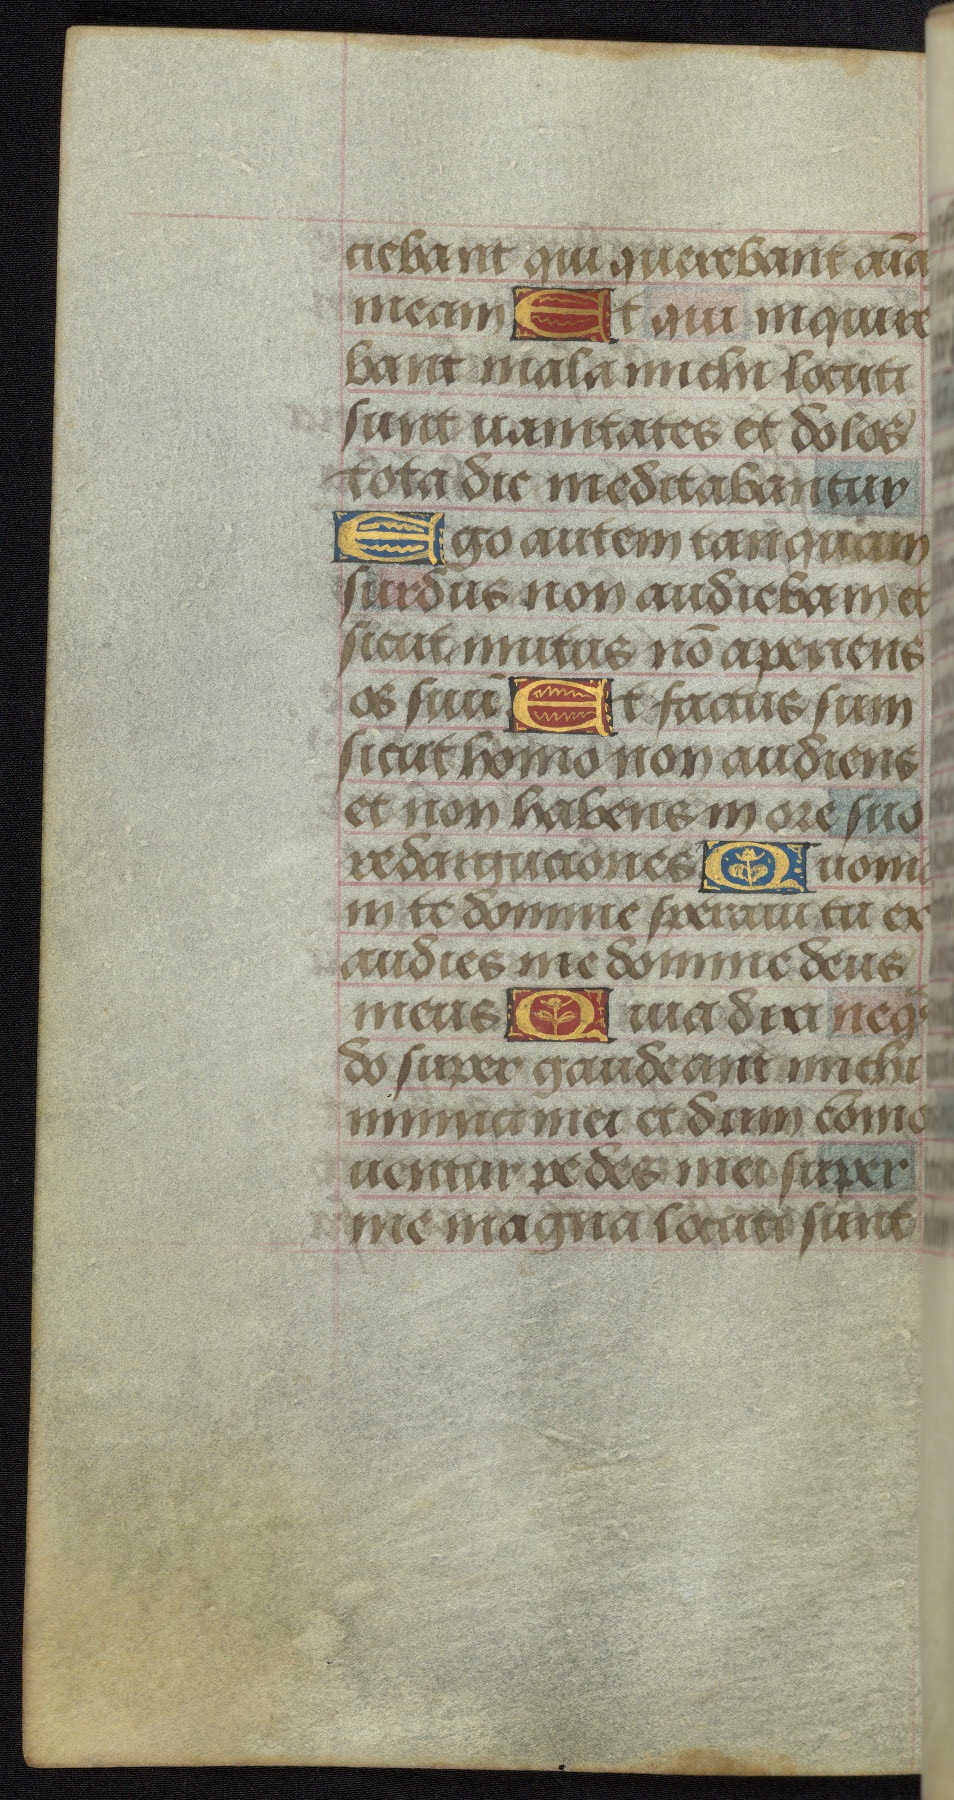 ciebant qui querebant aĩa
meam Et qui inquire
bant mala michi locuti
sunt uanitates et dolos
tota die meditabantur
Ego autem tanquam
surdus non audiebam et
sicut mutus nõ aperiens
os suũ Et factus sum
sicut homo non audiens
et non habens in ore suo
redarguciones Quoni
in te domine speraui tu ex
audies me domine deus
meus Quia dixi neqñ
do super gaudeant michi
inimici mei et dum cõmo
uentur pedes mei super
me magna locuti sunt